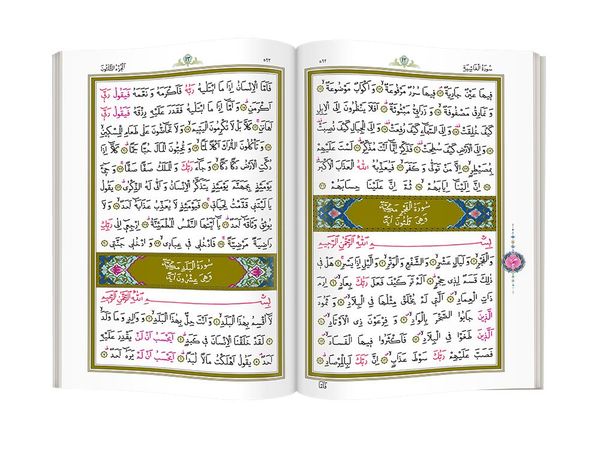 سُورَةُ الْغَاشِيَةِ
فِيهَا عَيْنٌ جَارِيَةٌ فِيهَا سُرُرٌ مَرْفُوعَةٌ وَأَكْوَابٌ مَوْضُوعَةٌ
وَنَمَارِقُ مَصْفُوفَةٌ وَزَرَابِيُّ مَبْثُوثَةٌ أَفَلَا يَنْظُرُونَ إِلَى الْإِبِلِ
كَيْفَ خُلِقَتْ وَإِلَى السَّمَاءِ كَيْفَ رُفِعَتْ وَإِلَى الْجِبَالِ كَيْفَ نُصِبَتْ
وَإِلَى الْأَرْضِ كَيْفَ سُطِحَتْ فَذَكِّرْ إِنَّمَا أَنْتَ مُذَكِّرٌ لَسْتَ عَلَيْهِمْ
بِمُصَيْطِرٍ إِلَّا مَنْ تَوَلَّى وَكَفَرَ فَيُعَذِّبُهُ اللّٰهُ الْعَذَابَ الْأَكْبَرَ
إِنَّ إِلَيْنَا إِيَابَهُمْ ثُمَّ إِنَّ عَلَيْنَا حِسَابَهُمْ
سُورَةُ الْفَجْرِ مَكِّيَّةٌ
وَهِيَ ثَلٰثُونَ آيَةً
بِسْمِ اللّٰهِ الرَّحْمٰنِ الرَّحِيمِ
وَالْفَجْرِ وَلَيَالٍ عَشْرٍ وَالشَّفْعِ وَالْوَتْرِ وَالَّيْلِ إِذَا يَسْرِ هَلْ فِي
ذٰلِكَ قَسَمٌ لِذِي حِجْرٍ أَلَمْ تَرَ كَيْفَ فَعَلَ رَبُّكَ بِعَادٍ إِرَمَ
ذَاتِ الْعِمَادِ الَّتِي لَمْ يُخْلَقْ مِثْلُهَا فِي الْبِلَادِ وَثَمُودَ
الَّذِينَ جَابُوا الصَّخْرَ بِالْوَادِ وَفِرْعَوْنَ ذِي الْأَوْتَادِ
الَّذِينَ طَغَوْا فِي الْبِلَادِ فَأَكْثَرُوا فِيهَا الْفَسَادَ
فَصَبَّ عَلَيْهِمْ رَبُّكَ سَوْطَ عَذَابٍ إِنَّ رَبَّكَ لَبِالْمِرْصَادِ
فَأَمَّا
اَلْجُزْءُ الثَّلٰثُونَ
فَأَمَّا الْإِنْسَانُ إِذَا مَا ابْتَلٰيهُ رَبُّهُ فَأَكْرَمَهُ وَنَعَّمَهُ فَيَقُولُ رَبِّي
أَكْرَمَنِ وَأَمَّا إِذَا مَا ابْتَلٰيهُ فَقَدَرَ عَلَيْهِ رِزْقَهُ فَيَقُولُ رَبِّي
أَهَانَنِ كَلَّا بَلْ لَا تُكْرِمُونَ الْيَتِيمَ وَلَا تَحَاضُّونَ عَلَى طَعَامِ الْمِسْكِينِ
وَتَأْكُلُونَ التُّرَاثَ أَكْلًا لَمًّا وَتُحِبُّونَ الْمَالَ حُبًّا جَمًّا كَلَّا إِذَا
دُكَّتِ الْأَرْضُ دَكًّا دَكًّا وَجَاءَ رَبُّكَ وَالْمَلَكُ صَفًّا صَفًّا وَجِيءَ
يَوْمَئِذٍ بِجَهَنَّمَ يَوْمَئِذٍ يَتَذَكَّرُ الْإِنْسَانُ وَأَنَّى لَهُ الذِّكْرٰى يَقُولُ
يَا لَيْتَنِي قَدَّمْتُ لِحَيَاتِي فَيَوْمَئِذٍ لَا يُعَذِّبُ عَذَابَهُ أَحَدٌ وَلَا
يُوثِقُ وَثَاقَهُ أَحَدٌ يَا أَيَّتُهَا النَّفْسُ الْمُطْمَئِنَّةُ اِرْجِعِي إِلَى رَبِّكِ
رَاضِيَةً مَرْضِيَّةً فَادْخُلِي فِي عِبَادِي وَادْخُلِي جَنَّتِي
سُورَةُ الْبَلَدِ مَكِّيَّةٌ
وَهِيَ عِشْرُونَ آيَةً
بِسْمِ اللّٰهِ الرَّحْمٰنِ الرَّحِيمِ
لَا أُقْسِمُ بِهٰذَا الْبَلَدِ وَأَنْتَ حِلٌّ بِهٰذَا الْبَلَدِ وَوَالِدٍ وَمَا وَلَدَ
لَقَدْ خَلَقْنَا الْإِنْسَانَ فِي كَبَدٍ أَيَحْسَبُ أَنْ لَنْ يَقْدِرَ عَلَيْهِ
أَحَدٌ يَقُولُ أَهْلَكْتُ مَالًا لُبَدًا أَيَحْسَبُ أَنْ لَمْ يَرَهُ أَحَدٌ